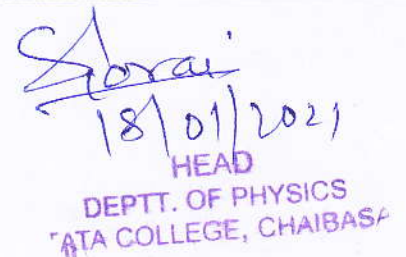 18/01/2021
HEAD
DEPTT. OF PHYSICS
TATA COLLEGE, CHAIBASA